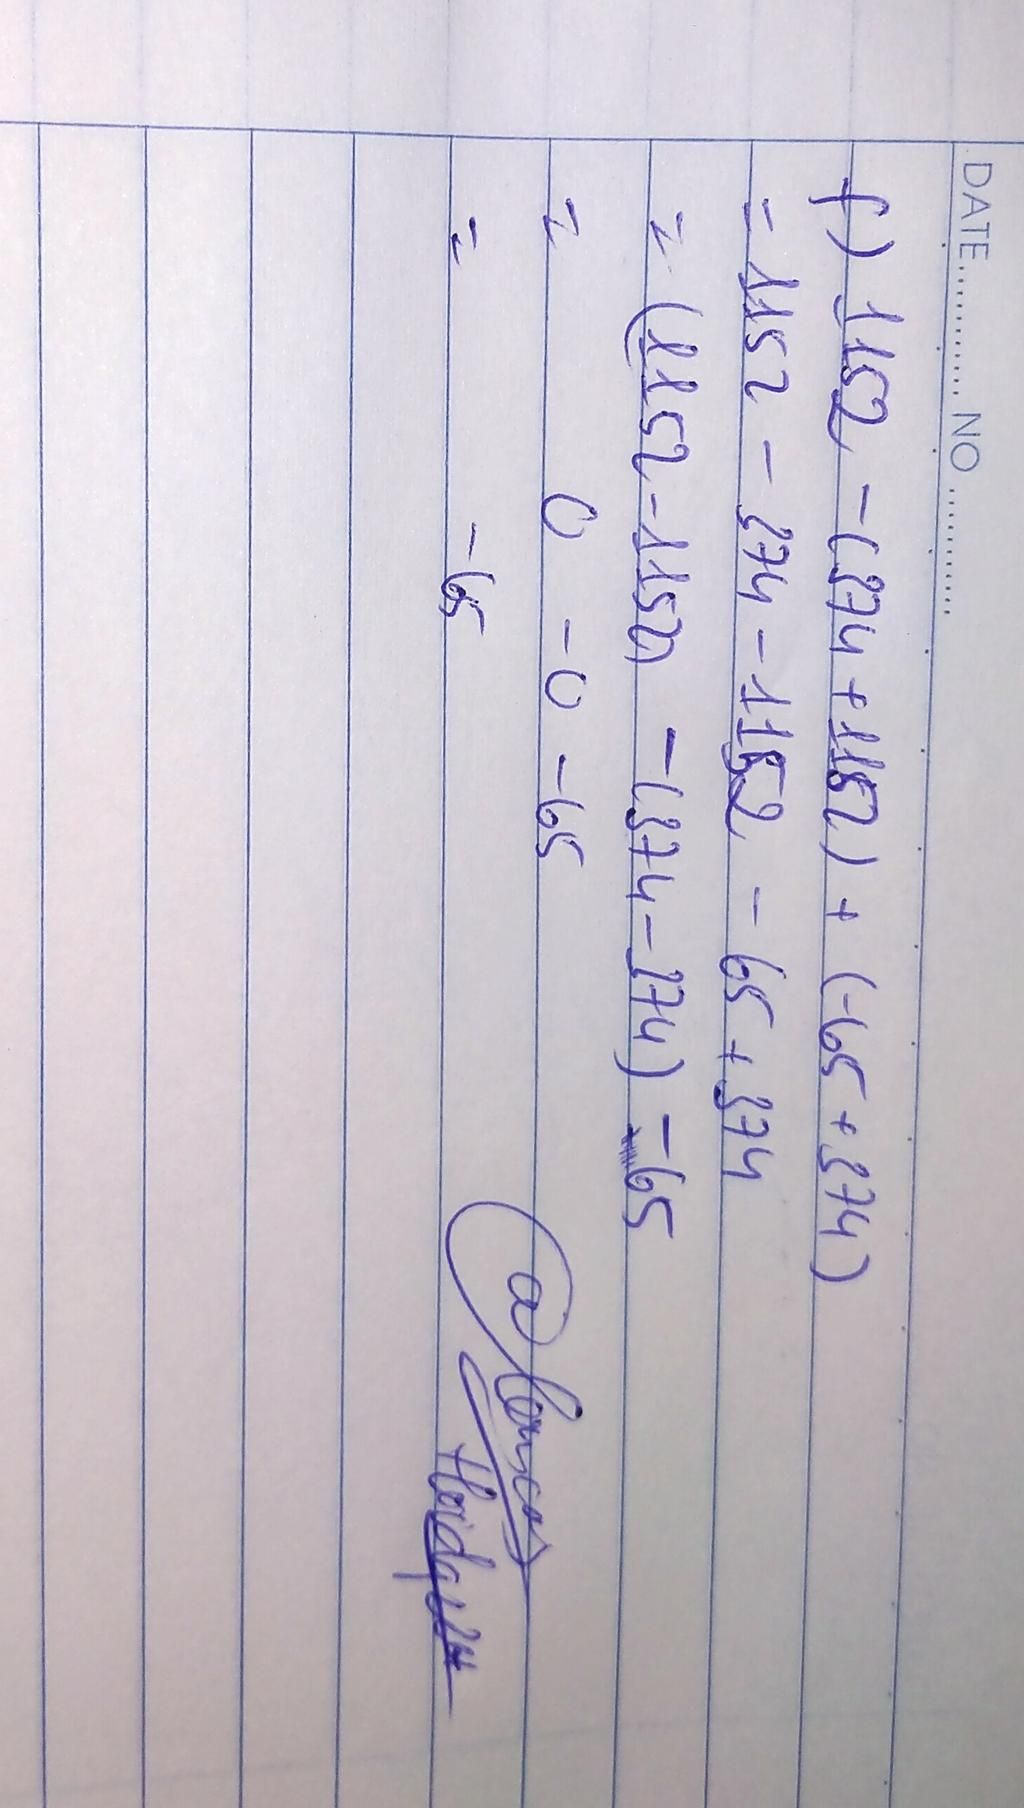 DATE............ NO ............
f) 1152 - (374 + 1152) + (-65 + 374)
= 1152 - 374 - 1152 - 65 + 374
= (1152 - 1152) - (374 - 374) - 65
= 0 - 0 - 65
= -65